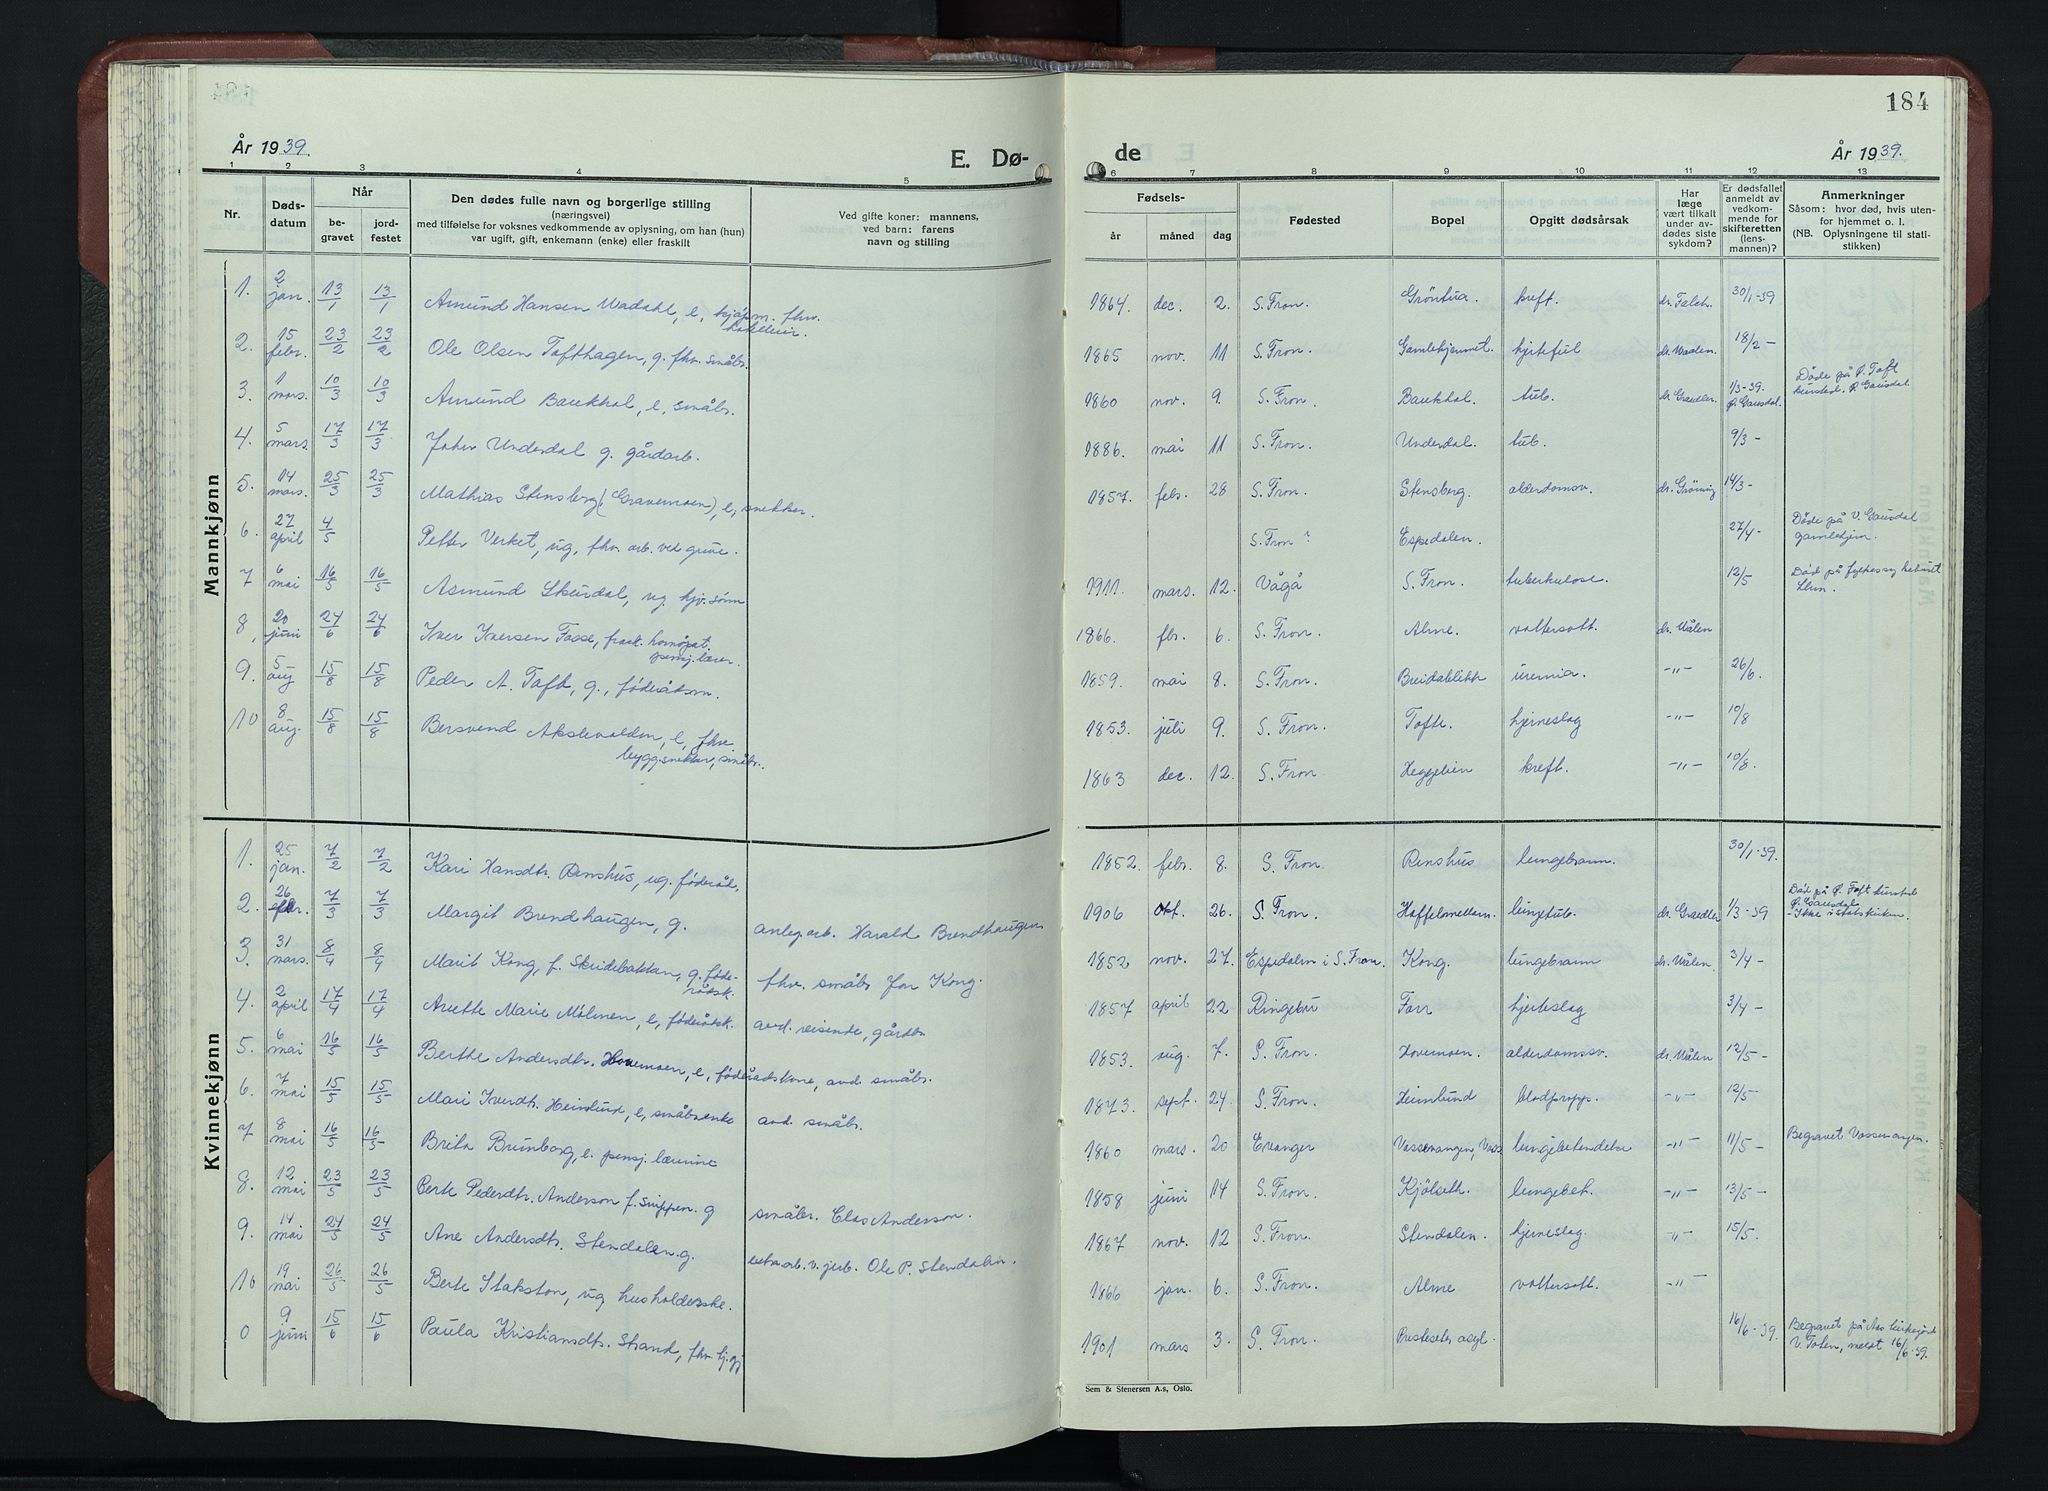 184
År 1939.
E. Dø-
de
År 1939.
1 2 3 4 5
6 7 8 9 10 11 12 13
Nr.
Døds-
datum
Når
be-
gravet
jord-
festet
Den dødes fulle navn og borgerlige stilling
(næringsvei)
med tilføielse for voksnes vedkommende av oplysning, om han (hun)
var ugift, gift, enkemann (enke) eller fraskilt
Ved gifte koner: mannens,
ved barn: farens
navn og stilling
Fødsels-
år måned dag
Fødested
Bopel
Opgitt dødsårsak
Har
læge
vært tilkalt
under av-
dødes siste
sykdom?
Er dødsfallet
anmeldt av
vedkom-
mende for
skifteretten
(lens-
mannen)?
Anmerkninger
Såsom: hvor død, hvis uten-
for hjemmet o. l.
(NB. Oplysningene til stati-
stikken)
Mannkjønn
1. 2 jan. 13/1 13/1 Amund Hansen Wadahl, e, kjøpm. fhv.
1864 dec. 2. S. Fron. kreft. dr. Falch. 30/1-39
2. 15 febr. 23/2 23/2 Ole Olsen Tofthagen, g. fhv. småbr.
1865 nov. 11 S. Fron. Gamlehjemmet. hjertefeil dr. Waden. 18/2 -
3. 1 mars. 10/3 10/3 Amund Baukhol, e, småbr.
1860 nov. 9. S. Fron. Baukhol. tub. 1/3-39. Ø. Gausdal. Døde på Ø. Toft kursted. Ø. Gausdal.
4. 5 mars. 17/3 17/3 Johs Underdal g. gårdarb.
1886. mai 11 S. Fron. Underdal. tub. 9/3 -
5. 14 mars. 25/3 25/3 Mathias Stensberg (Gravemoen), e, snekker.
1857. febr. 28 S. Fron. Stensberg. alderdomsv. 14/3 -
6. 27 april 4/5 Petter Verket, ug, fhv. arb. ved gruve.
S. Fron ? Espedalen. 27/4 - Døde på V. Gausdal gamlehjem.
7 6 mai 16/5 16/5 Asmund Skurdal, ug. hjv. sønn
1911. mars. 12. Vågå S. Fron. tuberkulose. 12/5 Død på fylkessykehuset Lhmr.
8, 20 juni 24/6 24/6 Iver Iversen Fosse, prakt. homöpat.
pensj. lærer.
1866. fbr. 6. S. Fron. Alme. vattersott. dr. Wålen
9. 5 aug 15/8 15/8 Peder A. Toft, g., føderådsm.
1859. mai 8. S. Fron. Breidablikk uremia. -"- 26/6.
10 8 aug. 15/8 15/8 Bersvend Akslevolden, e, fhv.
byggsnekker, småbr.
1853. juli 9. S. Fron. Tofte. hjerneslag -"- 10/8
1863 dec. 12. S. Fron. Heggelien kreft. -"- 10/8.
Kvinnekjønn
1. 25 jan. 7/2 7/2 Kari Hansdtr. Rinshus, ug. føderåd.
1852. febr. 8. S. Fron. Rinshus lungebrann. 30/1-39.
2. 26 febr. 7/3 7/3 Margit Brendhaugen, g. anleg. arb. Harald Brendhaugen
1906 okt. 26. S. Fron. lungetub. 1/3-39 Død på Ø. Toft kursted Ø. Gausdal - Ikke i statskirken.
3. 31 mars. 8/4 8/4 Marit Kong, f. Skridebakken, g. føde-
rådsk. fhv. småbr. Jon Kong.
1852 nov. 27. Espedalen i S. Fron. Kong. lungebrann dr. Wålen. 3/4 -
4. 2 april 17/4 17/4 Anette Marie Mølmen, e, føderådsk. avd. reisende, gårdbr.
1857 april 22 Ringebu Forr hjerteslag 3/4 -
5. 6 mai 16/5 16/5 Berthe Andersdtr. Hovemoen, e, føderådskone, avd. småbr.
1853. aug. 7. S. Fron. Hovemoen. alderdomssv. dr. Wålen 12/5 -
6. 7 mai 15/5 15/5 Mari Iverdtr. Heimlund, e, småbr.enke avd. småbr.
1873. sept. 24. S. Fron. Heimlund blodpropp. -"- 12/5 -
7 8 mai 16/5 16/5 Brita Brunborg, e. pensj. lærerinne
1860 mars. 20 Evanger Vossevangen, Voss lungebetendelse -"- 11/5 - Begravet Vossevangen.
8. 12 mai 23/5 23/5 Berte Pederdtr. Anderson f. Snippen. g småbr. Clas Anderson.
1858 juni 14 S. Fron. Kjölseth. lungebet. -"- 13/5 -
9. 14 mai 24/5 24/5 Ane Andersdtr. Stendalen. g. extraarb. v. jerb. Ole P. Stendalen.
1867 nov. 12 S. Fron. Stendalen. hjerneslag. -"- 15/5.
10 19 mai 26/5 26/5 Berte Stakston, ug husholderske.
1866 jan. 6. S. Fron. Alme vattersott. -"-
0 9 juni 15/6 15/6 Paula Kristiansdtr. Strand, fhv. hj.gj
1901 mars 3. S. Fron. Presteseter asyl. 16/6-39. Begravet på Aas kirkegård V. Toten, meldt 16/6 39.
Sem & Stenersen A.s, Oslo.